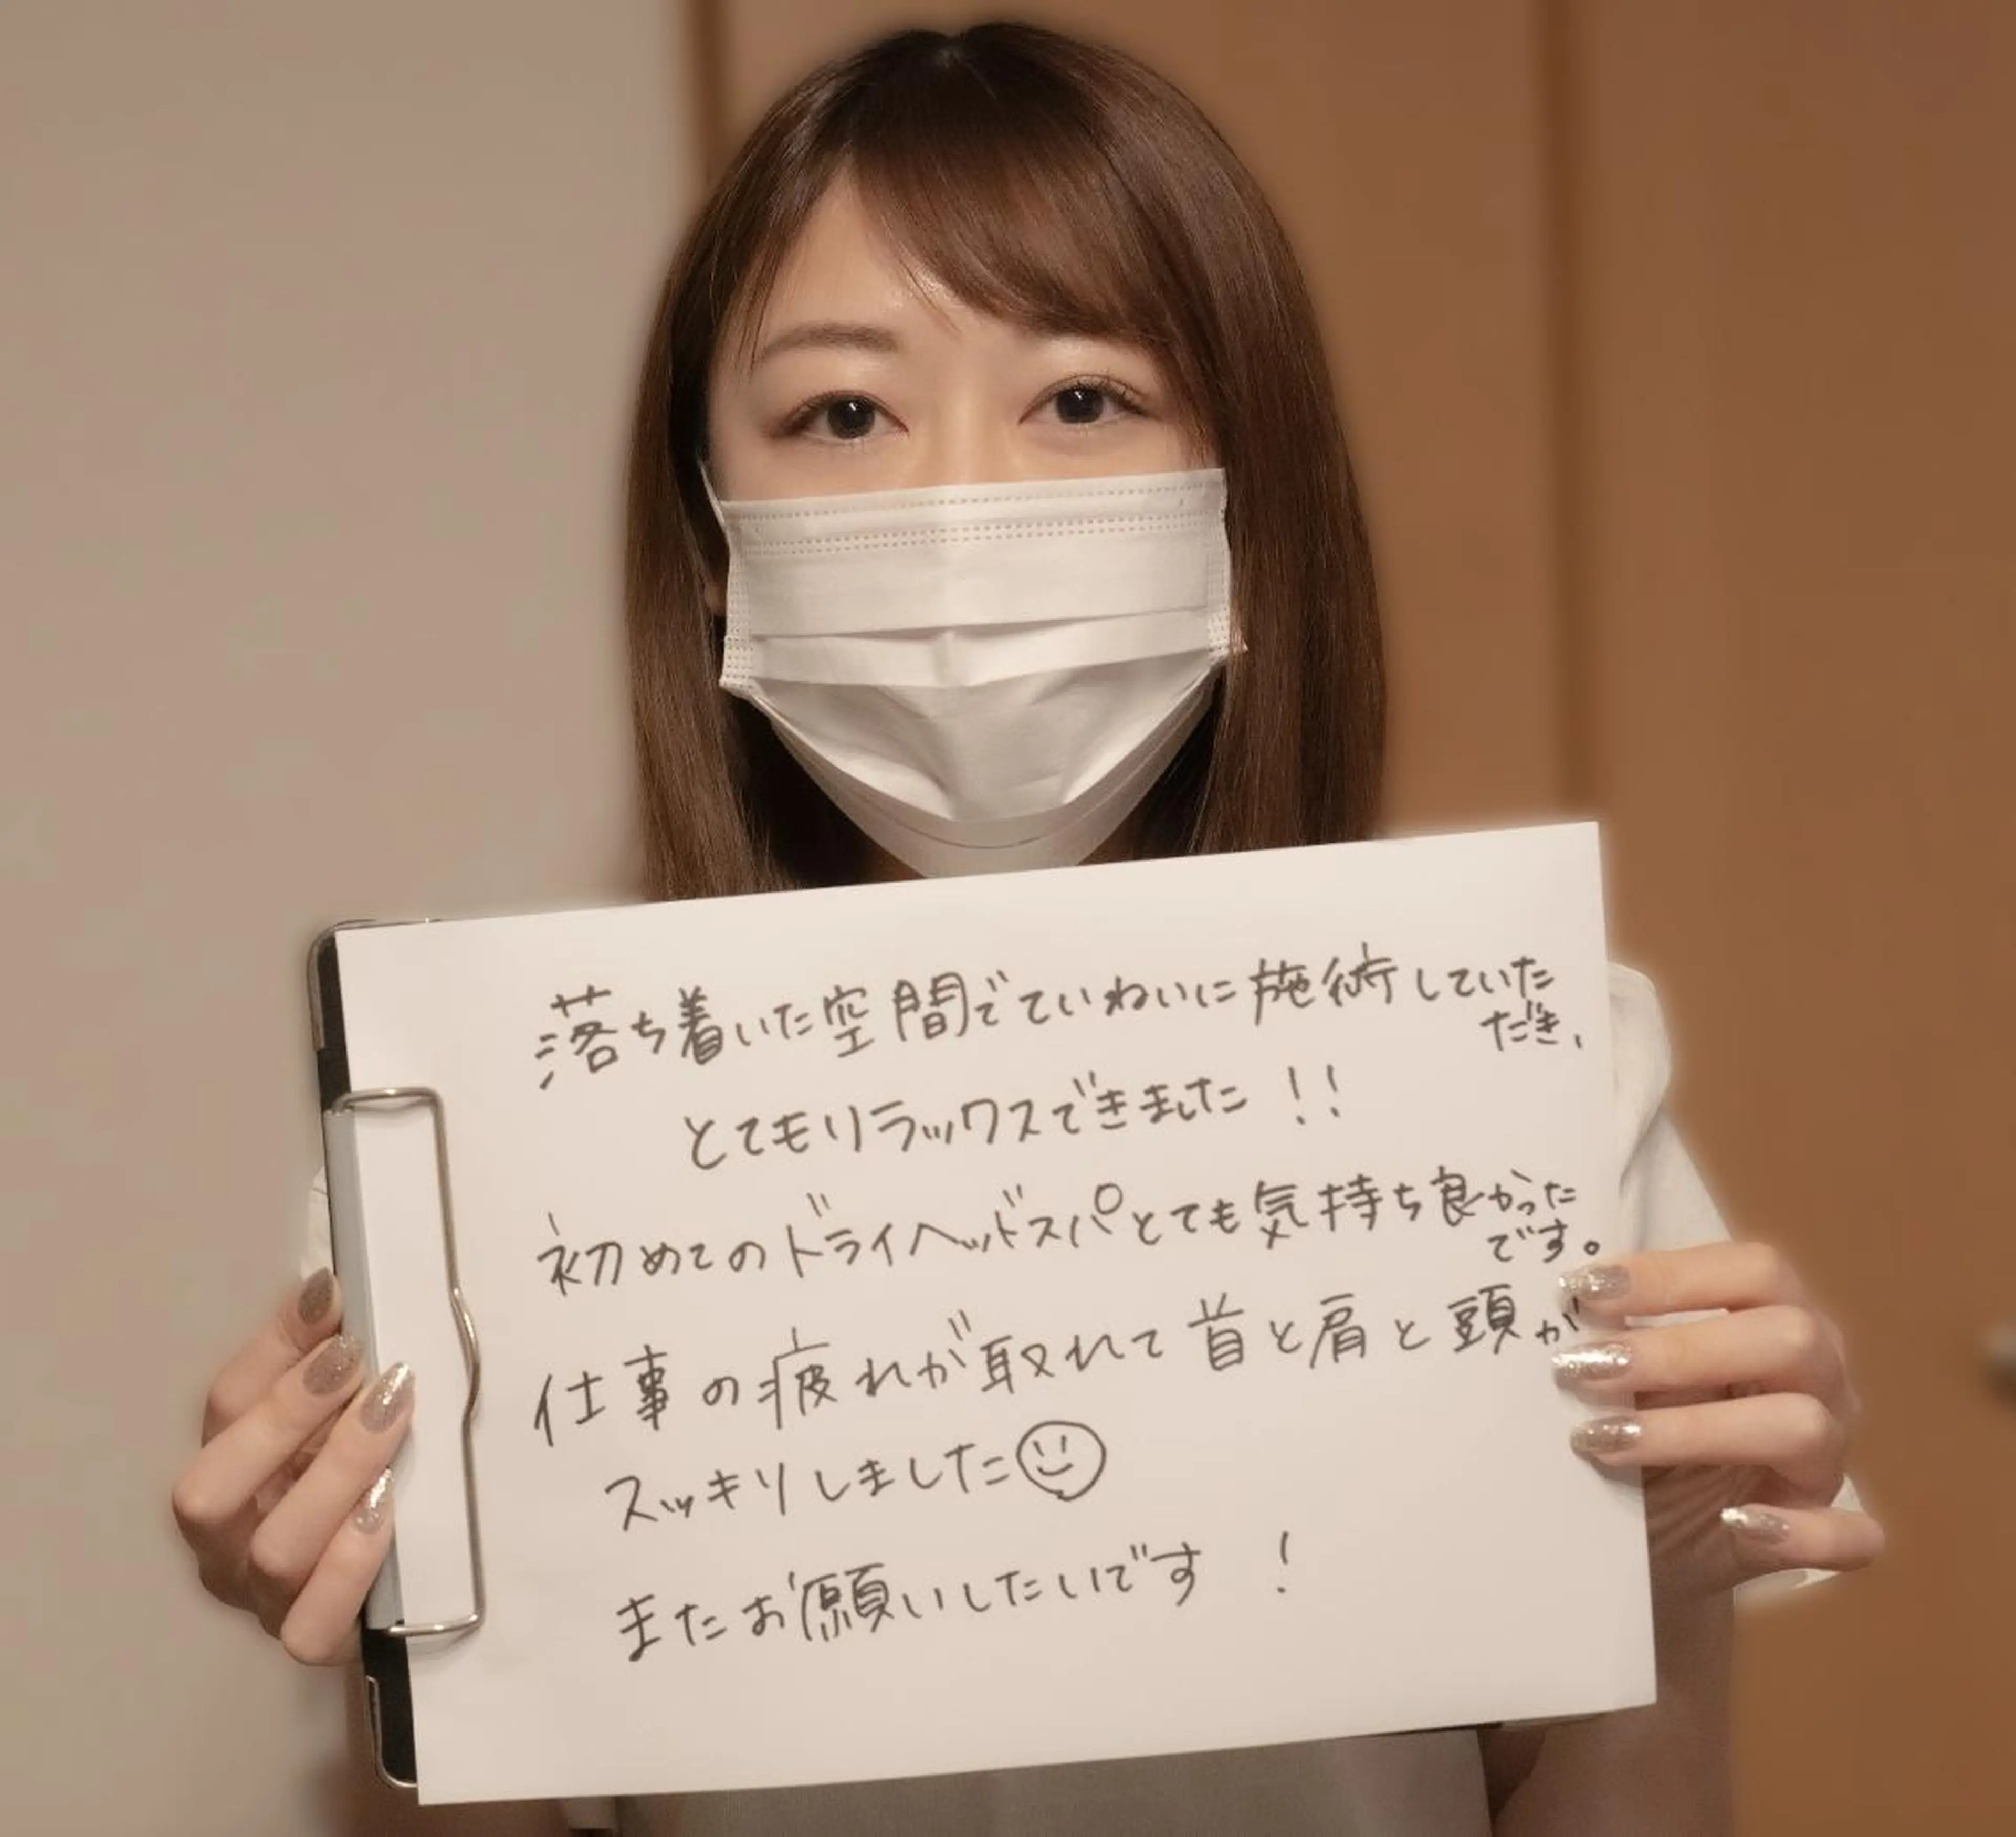 落ち着いた空間でていねいに施術していた
だき、
とてもリラックスできました!!
初めてのドライヘッドスパとても気持ち良かった
です。
仕事の疲れが取れて首と肩と頭が
スッキリしました
またお願いしたいです!